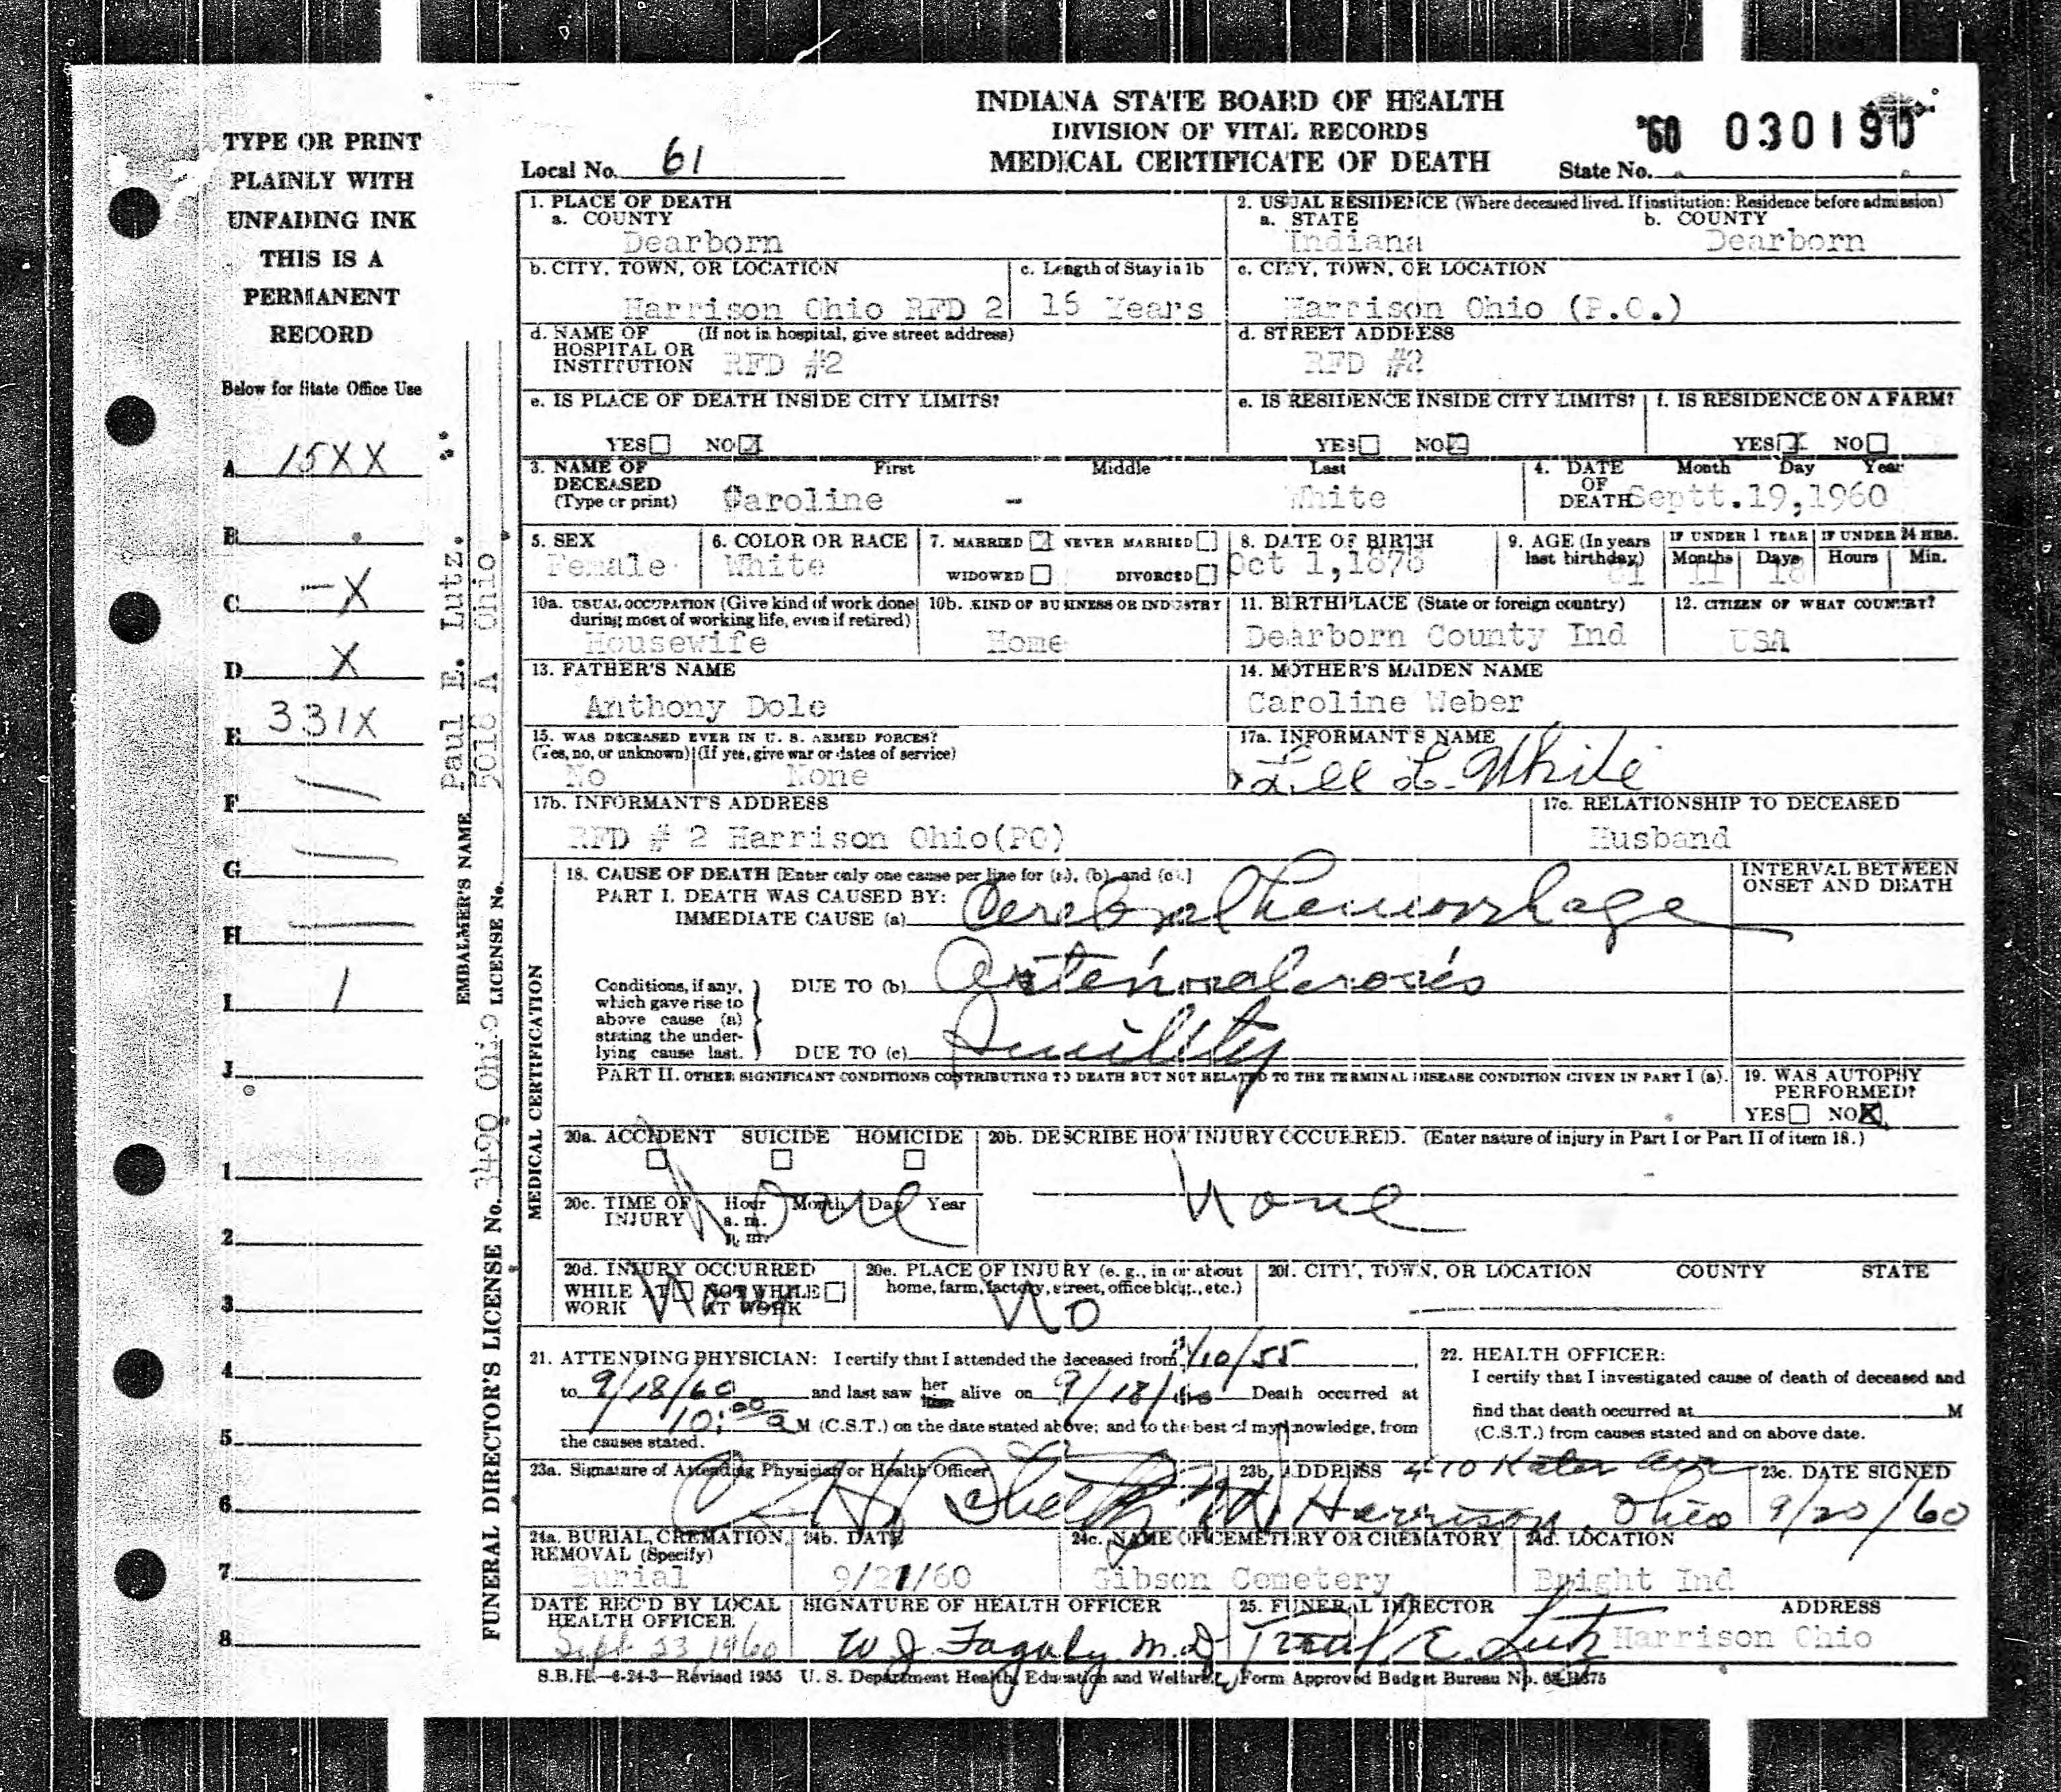 INDIANA STATE BOARD OF HEALTH
DIVISION OF VITAL RECORDS
MEDICAL CERTIFICATE OF DEATH
Local No. 61
'60 030190
State No.
TYPE OR PRINT
PLAINLY WITH
UNFADING INK
THIS IS A
PERMANENT
RECORD
Below for State Office Use
A 15XX
B
C -X
D X
E 331X
F
G
H
I 1
J
1
2
3
4
5
6
7
8
EMBALMER'S NAME Paul E. Lutz.
LICENSE No. 5018 A Ohio
FUNERAL DIRECTOR'S LICENSE No. 3400 Ohio
1. PLACE OF DEATH
a. COUNTY
Dearborn
2. USUAL RESIDENCE (Where deceased lived. If institution: Residence before admission)
a. STATE b. COUNTY
Indiana Dearborn
b. CITY, TOWN, OR LOCATION
Harrison Ohio RFD 2
c. Length of Stay in 1b
15 Years
c. CITY, TOWN, OR LOCATION
Harrison Ohio (P.O.)
d. NAME OF (If not in hospital, give street address)
HOSPITAL OR
INSTITUTION RFD #2
d. STREET ADDRESS
RFD #2
e. IS PLACE OF DEATH INSIDE CITY LIMITS?
YES NO X
e. IS RESIDENCE INSIDE CITY LIMITS?
YES NO X
f. IS RESIDENCE ON A FARM?
YES X NO
3. NAME OF DECEASED (Type or print) First Middle Last
Caroline - White
4. DATE OF DEATH Month Day Year
Septt.19,1960
5. SEX
Female
6. COLOR OR RACE
White
7. MARRIED X NEVER MARRIED
WIDOWED DIVORCED
8. DATE OF BIRTH
Oct 1,1878
9. AGE (In years last birthday)
81
IF UNDER 1 YEAR
Months Days
11 18
IF UNDER 24 HRS.
Hours Min.
10a. USUAL OCCUPATION (Give kind of work done during most of working life, even if retired)
Housewife
10b. KIND OF BUSINESS OR INDUSTRY
Home
11. BIRTHPLACE (State or foreign country)
Dearborn County Ind
12. CITIZEN OF WHAT COUNTRY?
USA
13. FATHER'S NAME
Anthony Dole
14. MOTHER'S MAIDEN NAME
Caroline Weber
15. WAS DECEASED EVER IN U. S. ARMED FORCES?
(Yes, no, or unknown) (If yes, give war or dates of service)
No None
17a. INFORMANT'S NAME
L. White
17b. INFORMANT'S ADDRESS
RFD # 2 Harrison Ohio(PO)
17c. RELATIONSHIP TO DECEASED
Husband
MEDICAL CERTIFICATION
18. CAUSE OF DEATH [Enter only one cause per line for (a), (b), and (c).]
INTERVAL BETWEEN
ONSET AND DEATH
PART I. DEATH WAS CAUSED BY:
IMMEDIATE CAUSE (a) Cerebral hemorrhage
Conditions, if any,
which gave rise to
above cause (a)
stating the under-
lying cause last.
DUE TO (b) Arteriosclerosis
DUE TO (c) Senility
PART II. OTHER SIGNIFICANT CONDITIONS CONTRIBUTING TO DEATH BUT NOT RELATED TO THE TERMINAL DISEASE CONDITION GIVEN IN PART I (a).
19. WAS AUTOPSY
PERFORMED?
YES NO X
20a. ACCIDENT SUICIDE HOMICIDE
20b. DESCRIBE HOW INJURY OCCURRED. (Enter nature of injury in Part I or Part II of item 18.)
None
20c. TIME OF INJURY Hour Month Day Year
a. m.
p. m.
None
20d. INJURY OCCURRED
WHILE AT WORK NOT WHILE AT WORK
20e. PLACE OF INJURY (e. g., in or about home, farm, factory, street, office bldg., etc.)
No
20f. CITY, TOWN, OR LOCATION COUNTY STATE
21. ATTENDING PHYSICIAN: I certify that I attended the deceased from /10/55
to 9/18/60 and last saw her him alive on 9/18/60 Death occurred at
10:00 a M (C.S.T.) on the date stated above; and to the best of my knowledge, from
the causes stated.
22. HEALTH OFFICER:
I certify that I investigated cause of death of deceased and
find that death occurred at M
(C.S.T.) from causes stated and on above date.
23a. Signature of Attending Physician or Health Officer
23b. ADDRESS 410
Harrison, Ohio
23c. DATE SIGNED
9/20/60
24a. BURIAL, CREMATION, REMOVAL (Specify)
Burial
24b. DATE
9/21/60
24c. NAME OF CEMETERY OR CREMATORY
Gibson Cemetery
24d. LOCATION
Bright Ind
DATE REC'D BY LOCAL HEALTH OFFICER
Sept 23, 1960
SIGNATURE OF HEALTH OFFICER
W J Fagaly M.D.
25. FUNERAL DIRECTOR ADDRESS
Paul E. Lutz Harrison Ohio
S.B.H.—6-24-3—Revised 1955 U. S. Department Health, Education and Welfare. Form Approved Budget Bureau No.